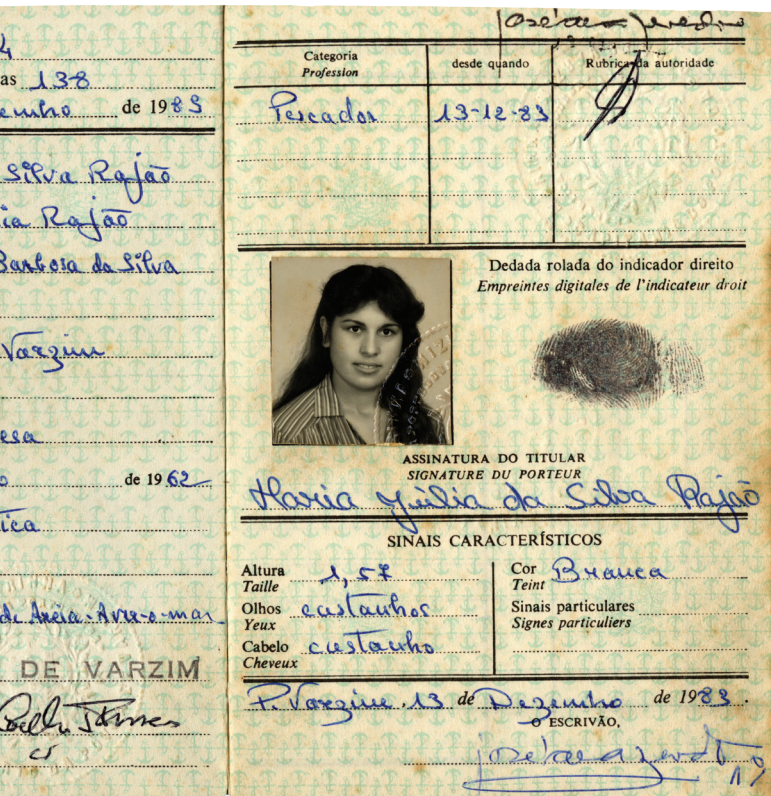 4
as 138
embro de 1983
Silva Rajão
ia Rajão
Barbosa da Silva
Varzim
esa
o de 1962
ica
de Areia - Aver-o-mar
DE VARZIM
Categoria
Profession
desde quando
Rubrica da autoridade
Pescador
13-12-83
Dedada rolada do indicador direito
Empreintes digitales de l'indicateur droit
ASSINATURA DO TITULAR
SIGNATURE DU PORTEUR
Maria Júlia da Silva Rajão
SINAIS CARACTERÍSTICOS
Altura 1,57
Taille
Olhos castanhos
Yeux
Cabelo castanho
Cheveux
Cor Branca
Teint
Sinais particulares
Signes particuliers
P. Varzim, 13 de Dezembro de 1983.
O ESCRIVÃO,